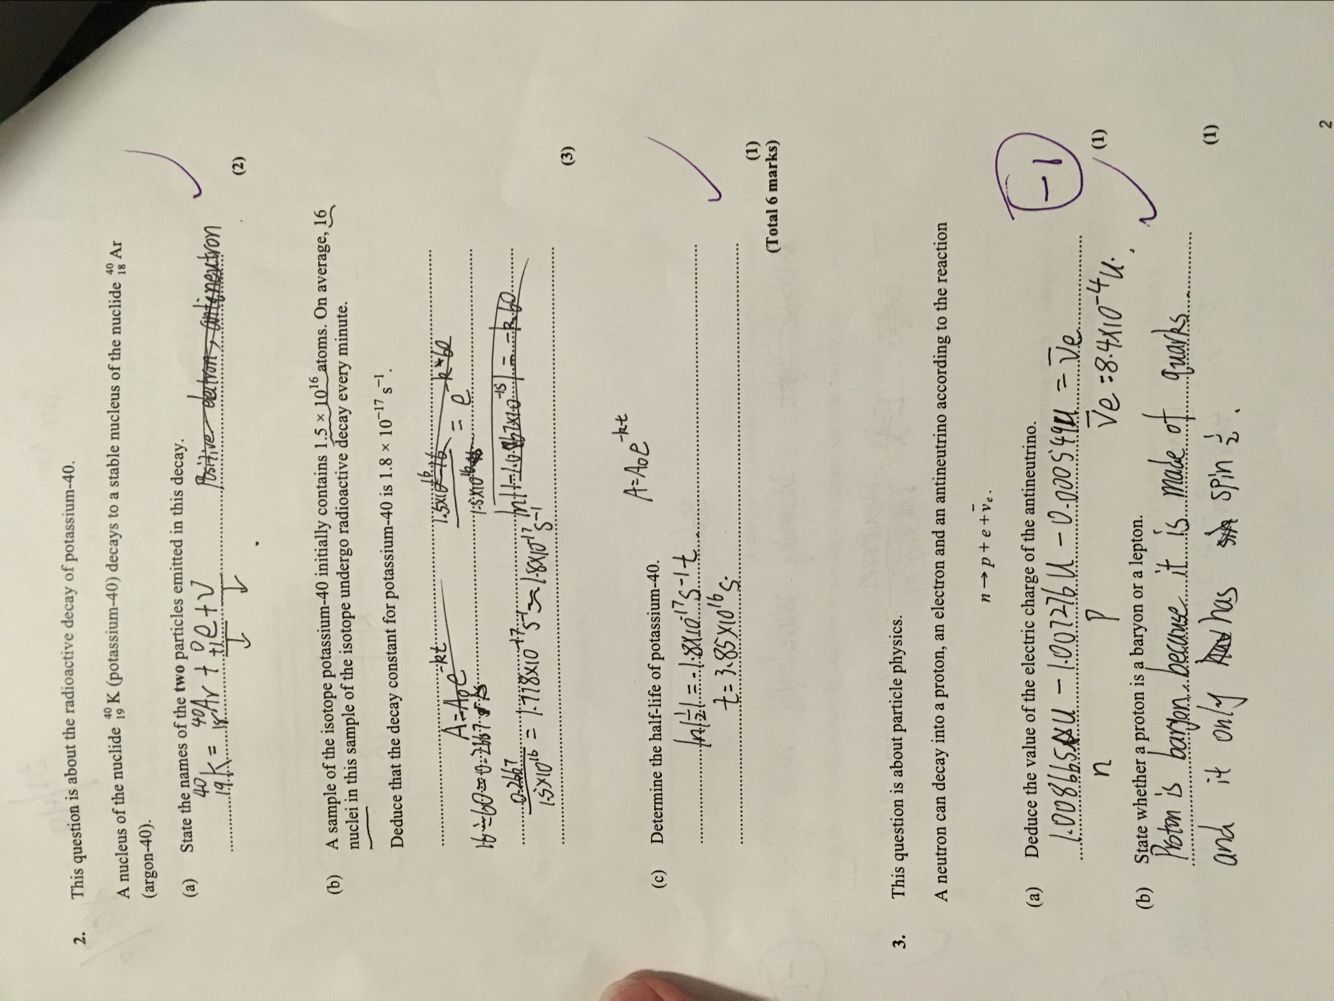 2. This question is about the radioactive decay of potassium-40.
A nucleus of the nuclide ⁴⁰₁₉ K (potassium-40) decays to a stable nucleus of the nuclide ⁴⁰₁₈ Ar
(argon-40).
(a) State the names of the two particles emitted in this decay.
Positive electron, antineutron
⁴⁰₁₉K = ⁴⁰₁₈Ar + ⁰₊₁e + ν
(2)
(b) A sample of the isotope potassium-40 initially contains 1.5 × 10¹⁶ atoms. On average, 16
nuclei in this sample of the isotope undergo radioactive decay every minute.
Deduce that the decay constant for potassium-40 is 1.8 × 10⁻¹⁷ s⁻¹.
A=A₀e⁻ᵏᵗ
16÷60=0.2667
0.2667
1.5×10¹⁶ = 1.778×10⁻¹⁷ s⁻¹ ≈ 1.8×10¹⁷ s⁻¹
(3)
A=A₀e⁻ᵏᵗ
(c) Determine the half-life of potassium-40.
ln|½| = -1.8×10⁻¹⁷ s⁻¹ t
t = 3.85×10¹⁶ s.
(1)
(Total 6 marks)
3. This question is about particle physics.
A neutron can decay into a proton, an electron and an antineutrino according to the reaction
n → p + e + ν̄ₑ.
-1
(a) Deduce the value of the electric charge of the antineutrino.
1.008665u - 1.007276u - 0.000549u = ν̄e
n p ν̄e = 8.4×10⁻⁴u.
(1)
(b) State whether a proton is a baryon or a lepton.
Proton is baryon because it is made of quarks
and it only has spin ½.
(1)
2